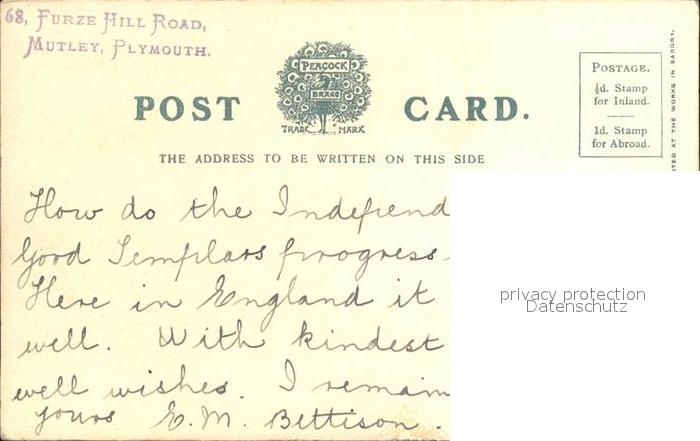 68, FURZE HILL ROAD,
MUTLEY, PLYMOUTH.
PEACOCK
BRAND
TRADE MARK
POST CARD.
THE ADDRESS TO BE WRITTEN ON THIS SIDE
POSTAGE.
½d. Stamp
for Inland.
1d. Stamp
for Abroad.
TED AT THE WORKS IN SAXONY.
How do the Independ
Good Templars progress.
Here in England it
well. With kindest
well wishes. I remain
yours E.M. Bettison.
privacy protection
Datenschutz